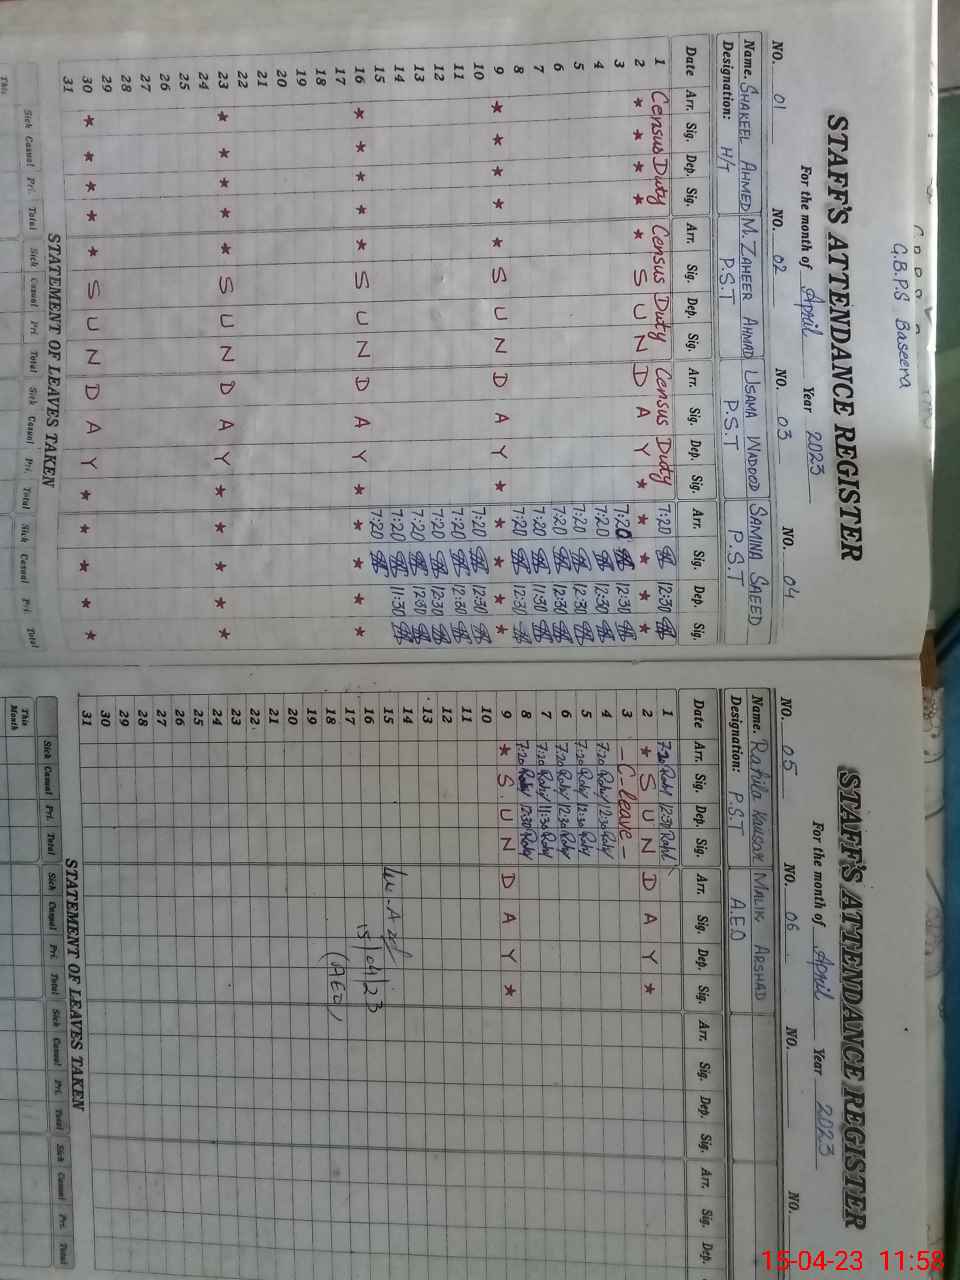 G.B.P.S Baseera
STAFF'S ATTENDANCE REGISTER
For the month of April Year 2023
NO. 01 NO. 02 NO. 03 NO. 04
Name. SHAKEEL AHMED M. ZAHEER AHMAD USAMA WADOOD SAMINA SAEED
Designation: H/T P.S.T P.S.T P.S.T
Date Arr. Sig. Dep. Sig. Arr. Sig. Dep. Sig. Arr. Sig. Dep. Sig. Arr. Sig. Dep. Sig.
1 Census Duty Census Duty Census Duty 7:20 12:30
2 * * * * * S U N D A Y * * * * *
3 7:20 12:30
4 7:20 12:30
5 7:20 12:30
6 7:20 12:30
7 7:20 11:30
8 7:20 12:30
9 * * * * * S U N D A Y * * * * *
10 7:20 12:30
11 7:20 12:30
12 7:20 12:30
13 7:20 12:30
14 7:20 11:30
15 7:20
16 * * * * * S U N D A Y * * * * *
17
18
19
20
21
22
23 * * * * * S U N D A Y * * * * *
24
25
26
27
28
29
30 * * * * * S U N D A Y * * * * *
31
STATEMENT OF LEAVES TAKEN
Sick Casual Pri. Total Sick Casual Pri. Total Sick Casual Pri. Total Sick Casual Pri. Total
This
STAFF'S ATTENDANCE REGISTER
For the month of April Year 2023
NO. 05 NO. 06 NO. NO.
Name. Rahila Kausar MALIK ARSHAD
Designation: P.S.T A.E.O
Date Arr. Sig. Dep. Sig. Arr. Sig. Dep. Sig. Arr. Sig. Dep. Sig. Arr. Sig. Dep.
1 7:20 12:30
2 * S U N D A Y *
3 - C-leave -
4 7:20 12:30
5 7:20 12:30
6 7:20 12:30
7 7:20 11:30
8 7:20 12:30
9 * S U N D A Y *
10
11
12
13
14
15
16 15/04/23
17
18 (AEO)
19
20
21
22
23
24
25
26
27
28
29
30
31
STATEMENT OF LEAVES TAKEN
Sick Casual Pri. Total Sick Casual Pri. Total Sick Casual Pri. Total Sick Casual Pri. Total
This Month
15-04-23 11:58